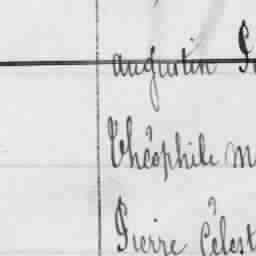 augustin
Théophile
Pierre Célest